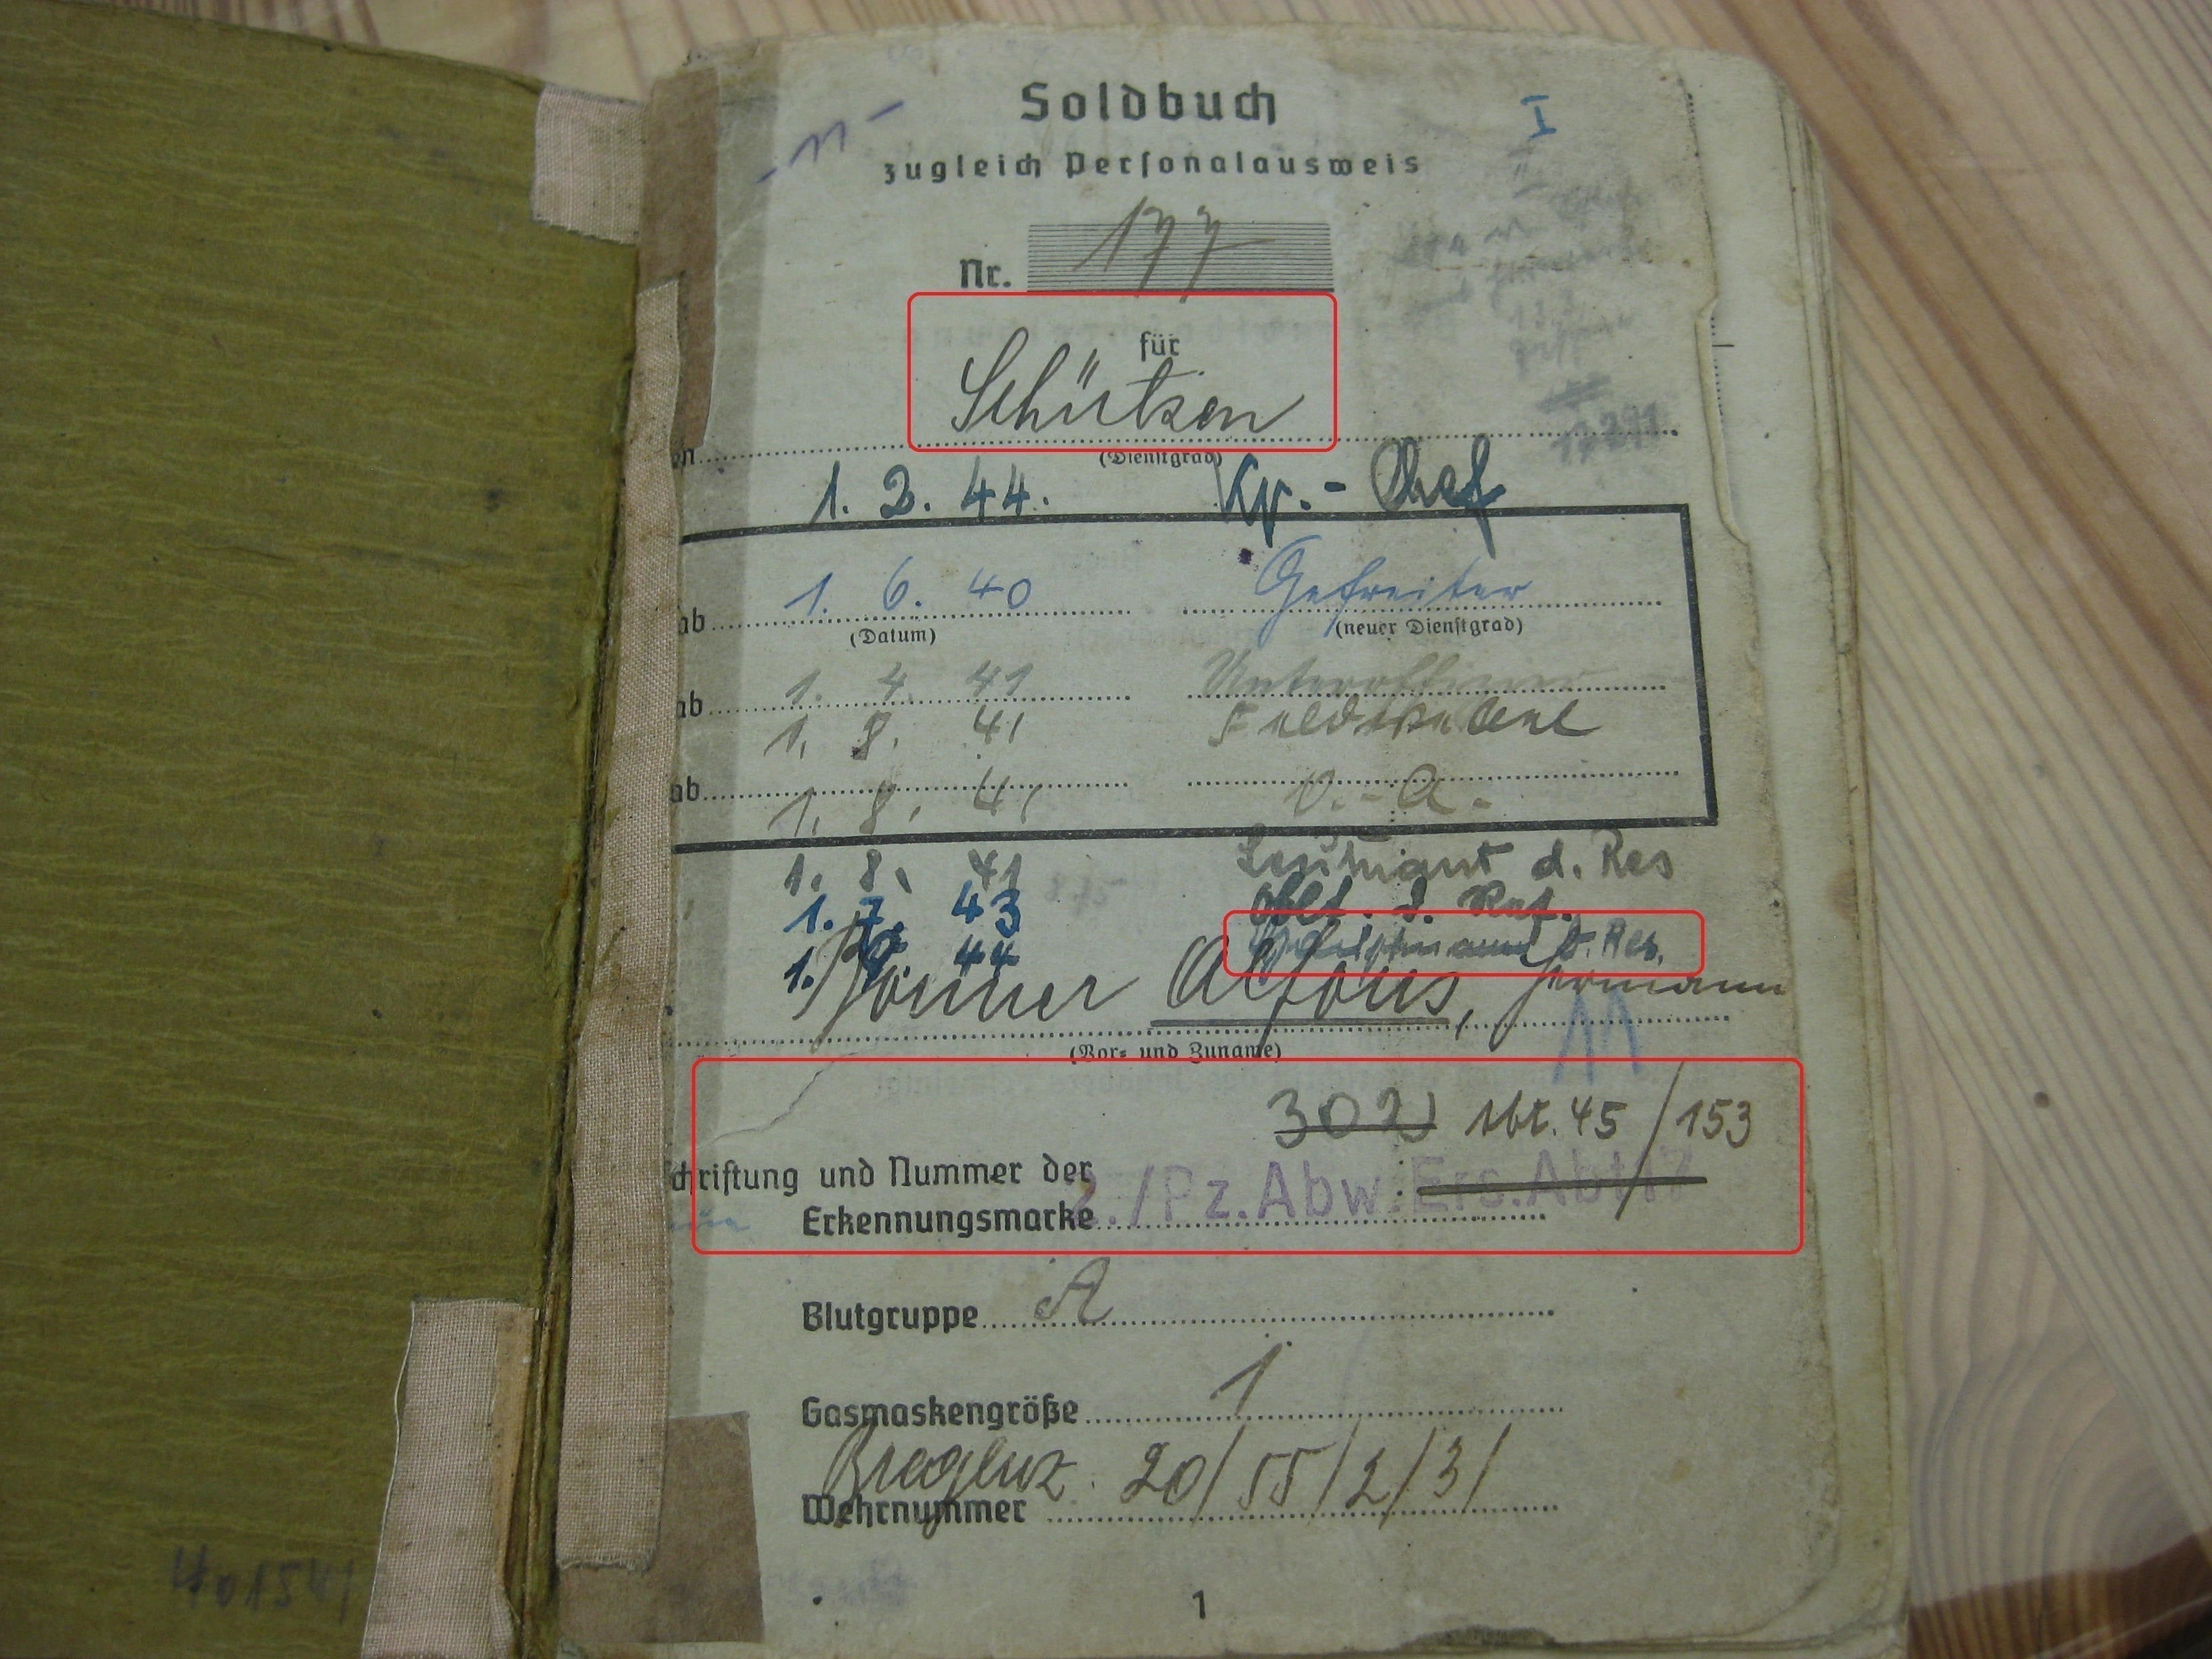 Soldbuch
zugleich Personalausweis
I
Nr. 177
für
Schützen
(Dienstgrad)
1. 2. 44. Kp.- Chef
ab 1. 6. 40 Gefreiter
(Datum) (neuer Dienstgrad)
ab 1. 4. 41 Unteroffizier
1. 8. 41 Feldwebel
ab
1. 8. 41 O.-A.
1. 8. 41 Leutnant d. Res
1. 7. 43 Oblt. d. Res.
1. 44 d. Res.
Alfons, Hermann
(Vor- und Zuname)
11
302 Abt. 45 / 153
chriftung und Nummer der
Erkennungsmarke 2./Pz.Abw.Ers.Abt.17
Blutgruppe A
Gasmaskengröße 1
Bregenz 20/55/2/3/
Wehrnummer
1